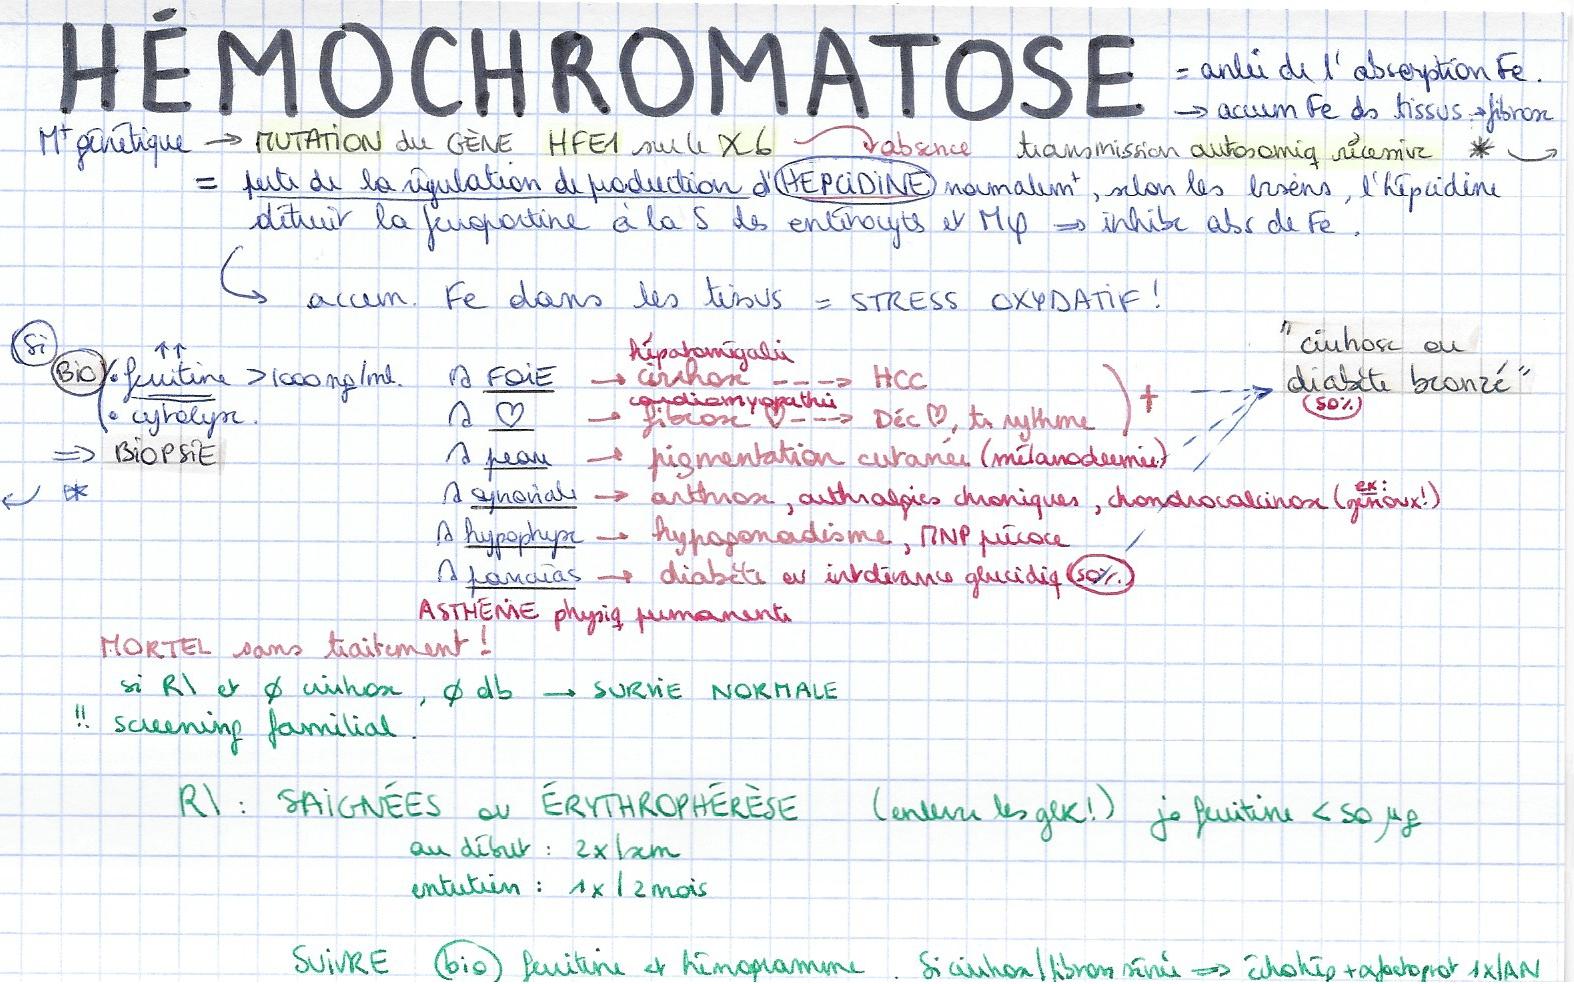 HÉMOCHROMATOSE = anlie de l'absorption Fe.
→ accum Fe ds tissus → fibrose
Mᵗ génétique → MUTATION du GÈNE HFE1 sur le X6 absence transmission autosomiq récessive *
= perte de la régulation de production d'HEPCIDINE normalemᵗ, selon les besoins, l'hépcidine
détruit la ferroportine à la S des entérocyts et Mφ ⇒ inhibe abs de Fe.
accum. Fe dans les tissus = STRESS OXYDATIF!
Si
Bio • ferritine ↑↑ > 1000 ng/ml.
• cytolyse.
⇒ BIOPSIE
*
FOIE → hépatomégalie cirrhose ---> HCC
♡ → cardiomyopathie fibrose ♡ ---> Déc ♡, tr rythme
+
"cirrhose ou
diabète bronzé"
(50%)
peau → pigmentation cutanée (mélanodermie)
synoviale → arthrose, arthralgies chroniques, chondrocalcinose (ex: genoux!)
hypophyse → hypogonadisme, MNP précoce
pancréas → diabète ou intolérance glucidiq 50%.
ASTHÉNIE physiq permanente
MORTEL sans traitement!
si R\ et ∅ cirrhose, ∅ db → SURVIE NORMALE
!! screening familial.
R\ : SAIGNÉES ou ÉRYTHROPHÉRÈSE (enlève les glR!) jq ferritine < 50 µg
au début : 2x/sem
entretien : 1x/2mois
SUIVRE bio ferritine et hémogramme. Si cirrhose/fibrose sévère ⇒ échohép + αfoetoprot 1x/AN